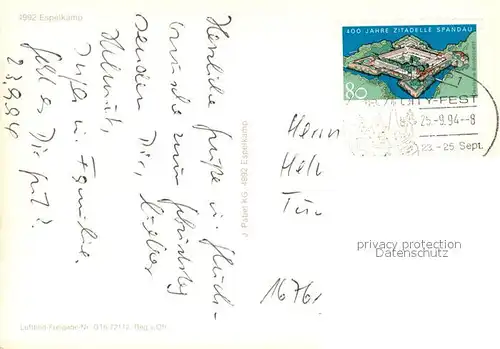 4992 Espelkamp
23.9.94
Herzliche Grüße u. Glück-
wünsche zum Geburtstag
senden Dir, lieber
Helmut,
Inge u. Familie.
Geht es Dir gut?
J. Pabel KG · 4992 Espelkamp
400 JAHRE ZITADELLE SPANDAU
80
CITY-FEST
25.-9.94--8
23. - 25. Sept.
Herrn
Hel
privacy protection
Datenschutz
1676
Luftbild-Freigabe-Nr.